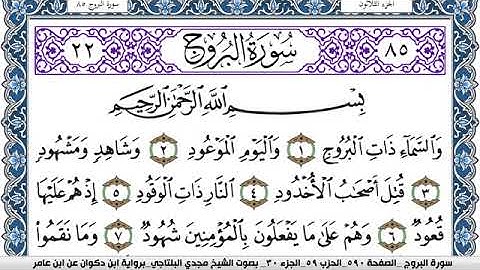 الجزء الثلاثون سورة البروج ٨٥
٨٥ سُورَةُ البُرُوجِ ٢٢
بِسْمِ اللَّهِ الرَّحْمَٰنِ الرَّحِيمِ
وَالسَّمَآءِ ذَاتِ الْبُرُوجِ ١ وَالْيَوْمِ الْمَوْعُودِ ٢ وَشَاهِدٍ وَمَشْهُودٍ
٣ قُتِلَ أَصْحَٰبُ الْأُخْدُودِ ٤ النَّارِ ذَاتِ الْوَقُودِ ٥ إِذْ هُمْ عَلَيْهَا
قُعُودٌ ٦ وَهُمْ عَلَىٰ مَا يَفْعَلُونَ بِالْمُؤْمِنِينَ شُهُودٌ ٧ وَمَا نَقَمُوا
سورة البروج _الصفحة ٥٩٠_ الحزب ٥٩_الجزء ٣٠ _ بصوت الشيخ مجدي البلتاجي_برواية ابن ذكوان عن ابن عامر